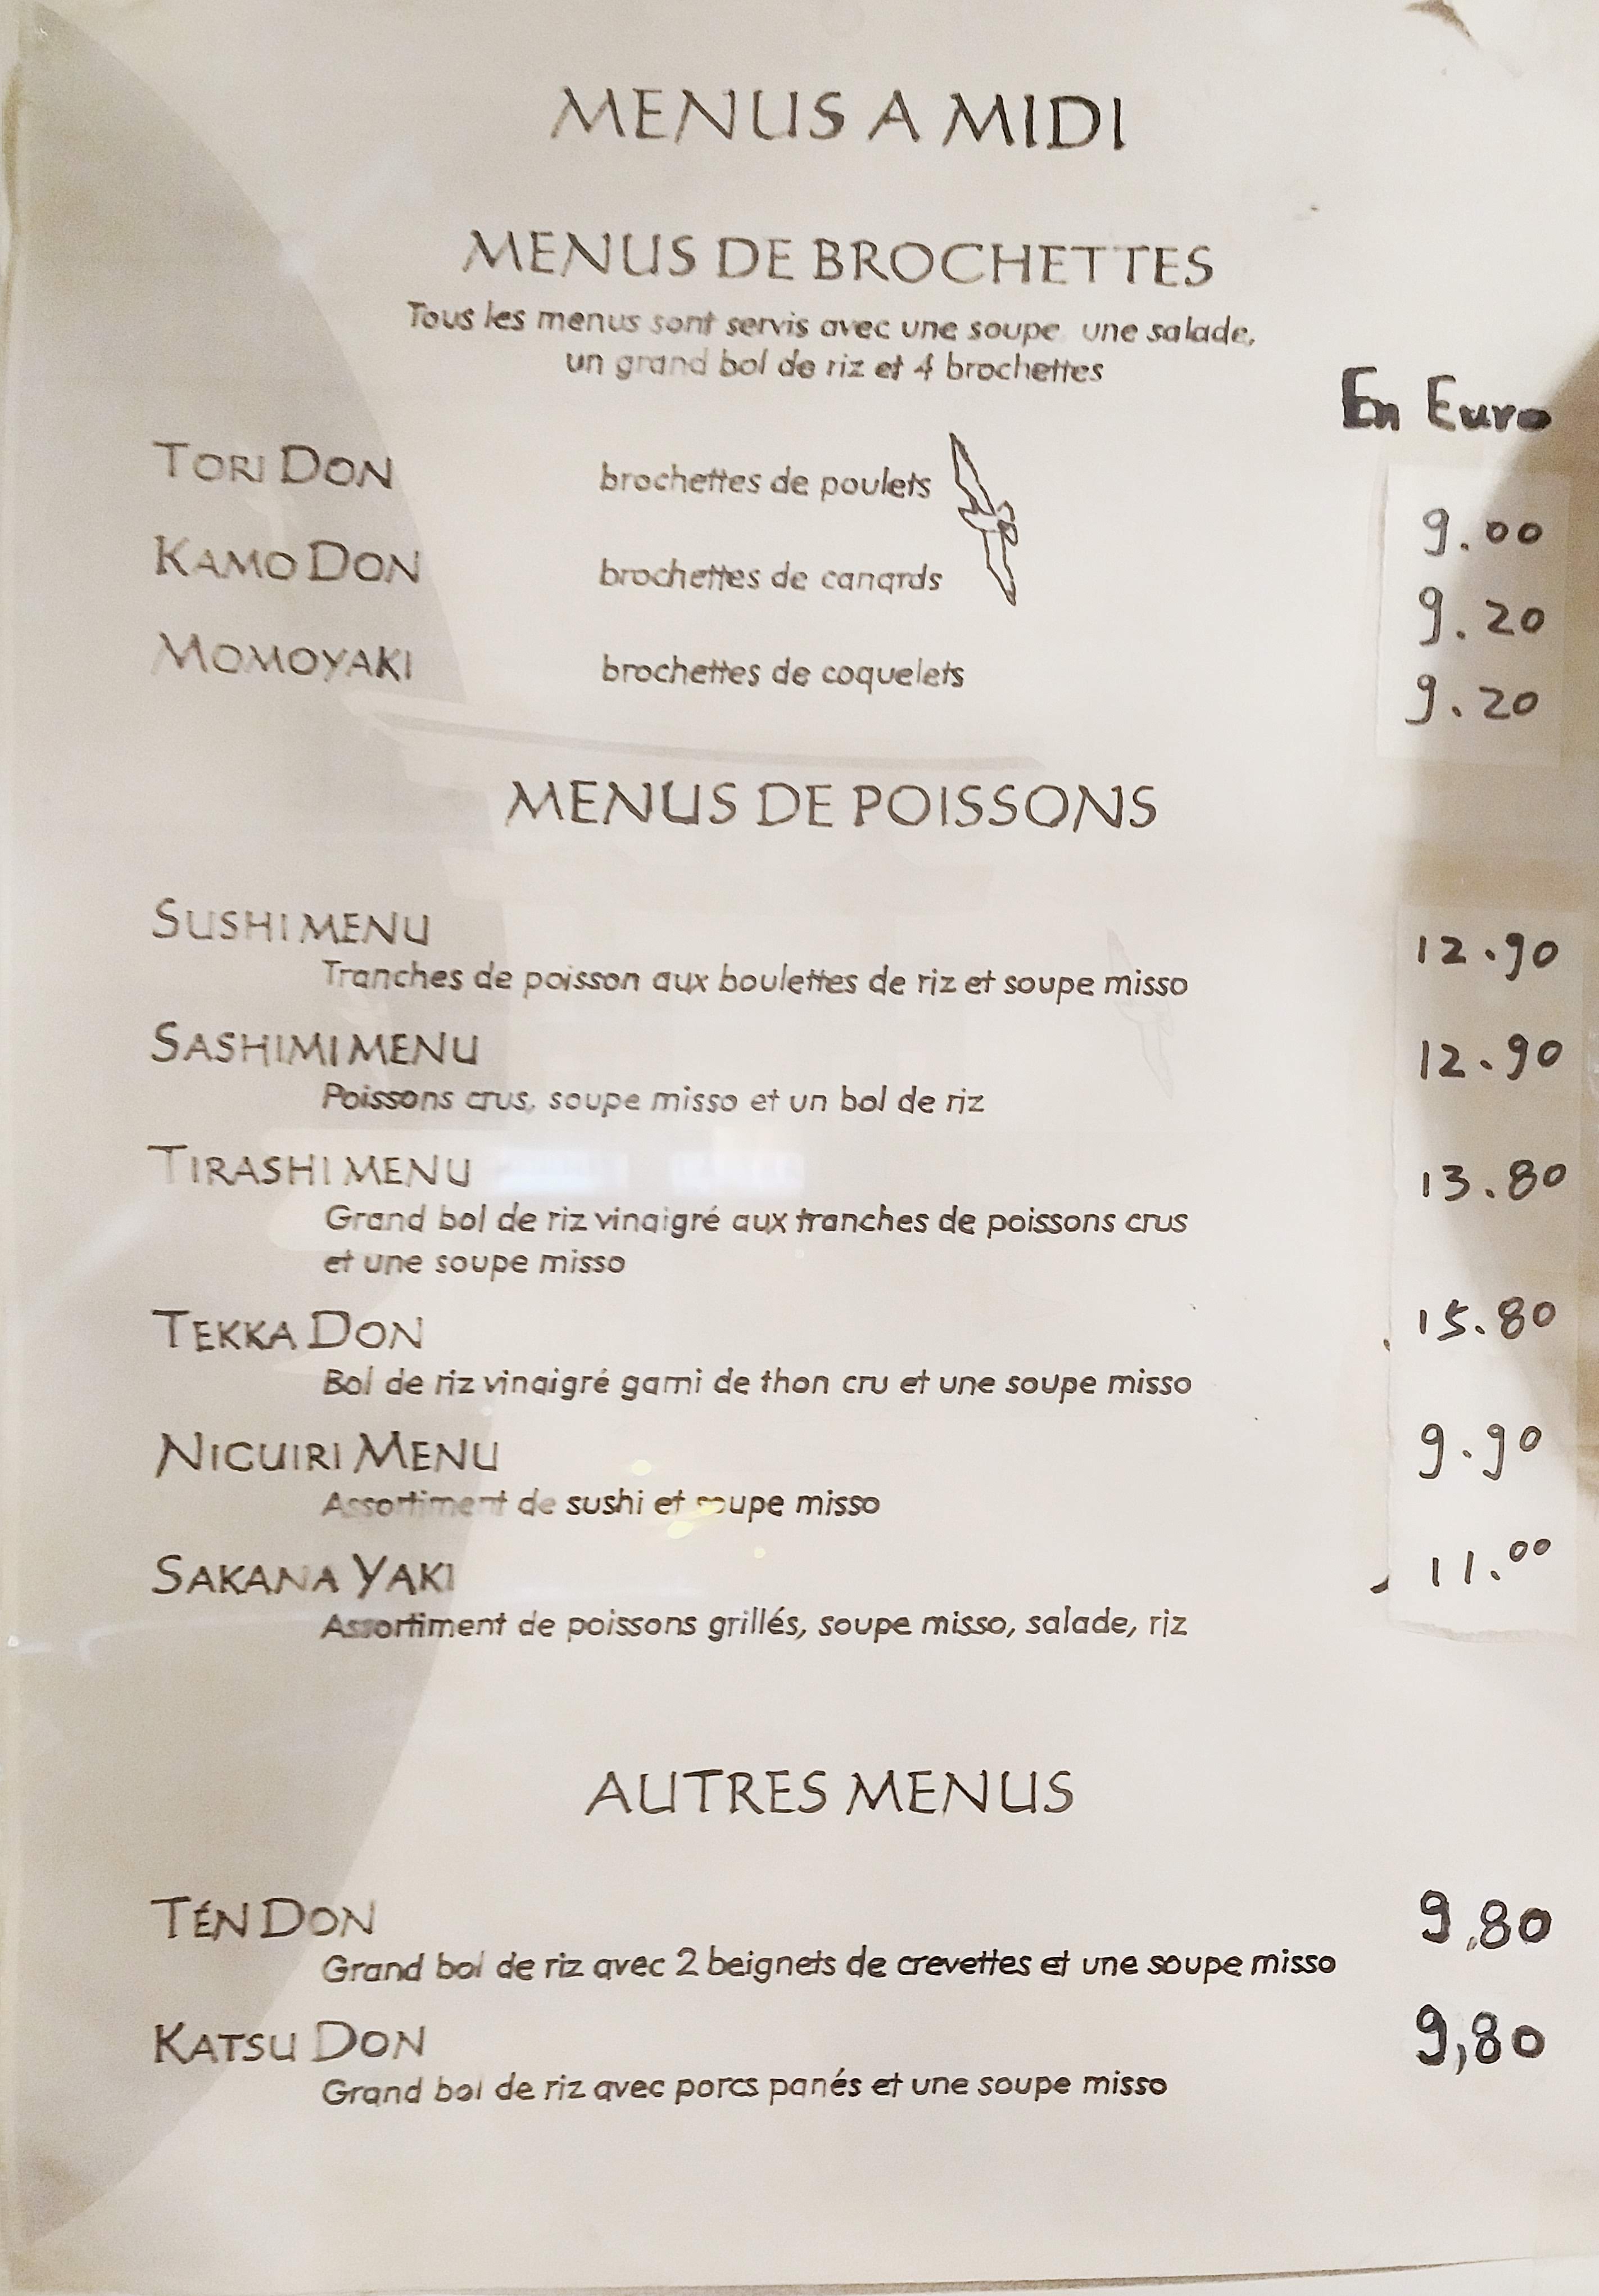 MENUS A MIDI
MENUS DE BROCHETTES
Tous les menus sont servis avec une soupe, une salade,
un grand bol de riz et 4 brochettes
En Euro
TORI DON brochettes de poulets 9.00
KAMO DON brochettes de canards 9.20
MOMOYAKI brochettes de coquelets 9.20
MENUS DE POISSONS
SUSHI MENU 12.90
Tranches de poisson aux boulettes de riz et soupe misso
SASHIMI MENU 12.90
Poissons crus, soupe misso et un bol de riz
TIRASHI MENU 13.80
Grand bol de riz vinaigré aux tranches de poissons crus
et une soupe misso
TEKKA DON 15.80
Bol de riz vinaigré garni de thon cru et une soupe misso
NICUIRI MENU 9.90
Assortiment de sushi et soupe misso
SAKANA YAKI 11.00
Assortiment de poissons grillés, soupe misso, salade, riz
AUTRES MENUS
TÉN DON 9,80
Grand bol de riz avec 2 beignets de crevettes et une soupe misso
KATSU DON 9,80
Grand bol de riz avec porcs panés et une soupe misso